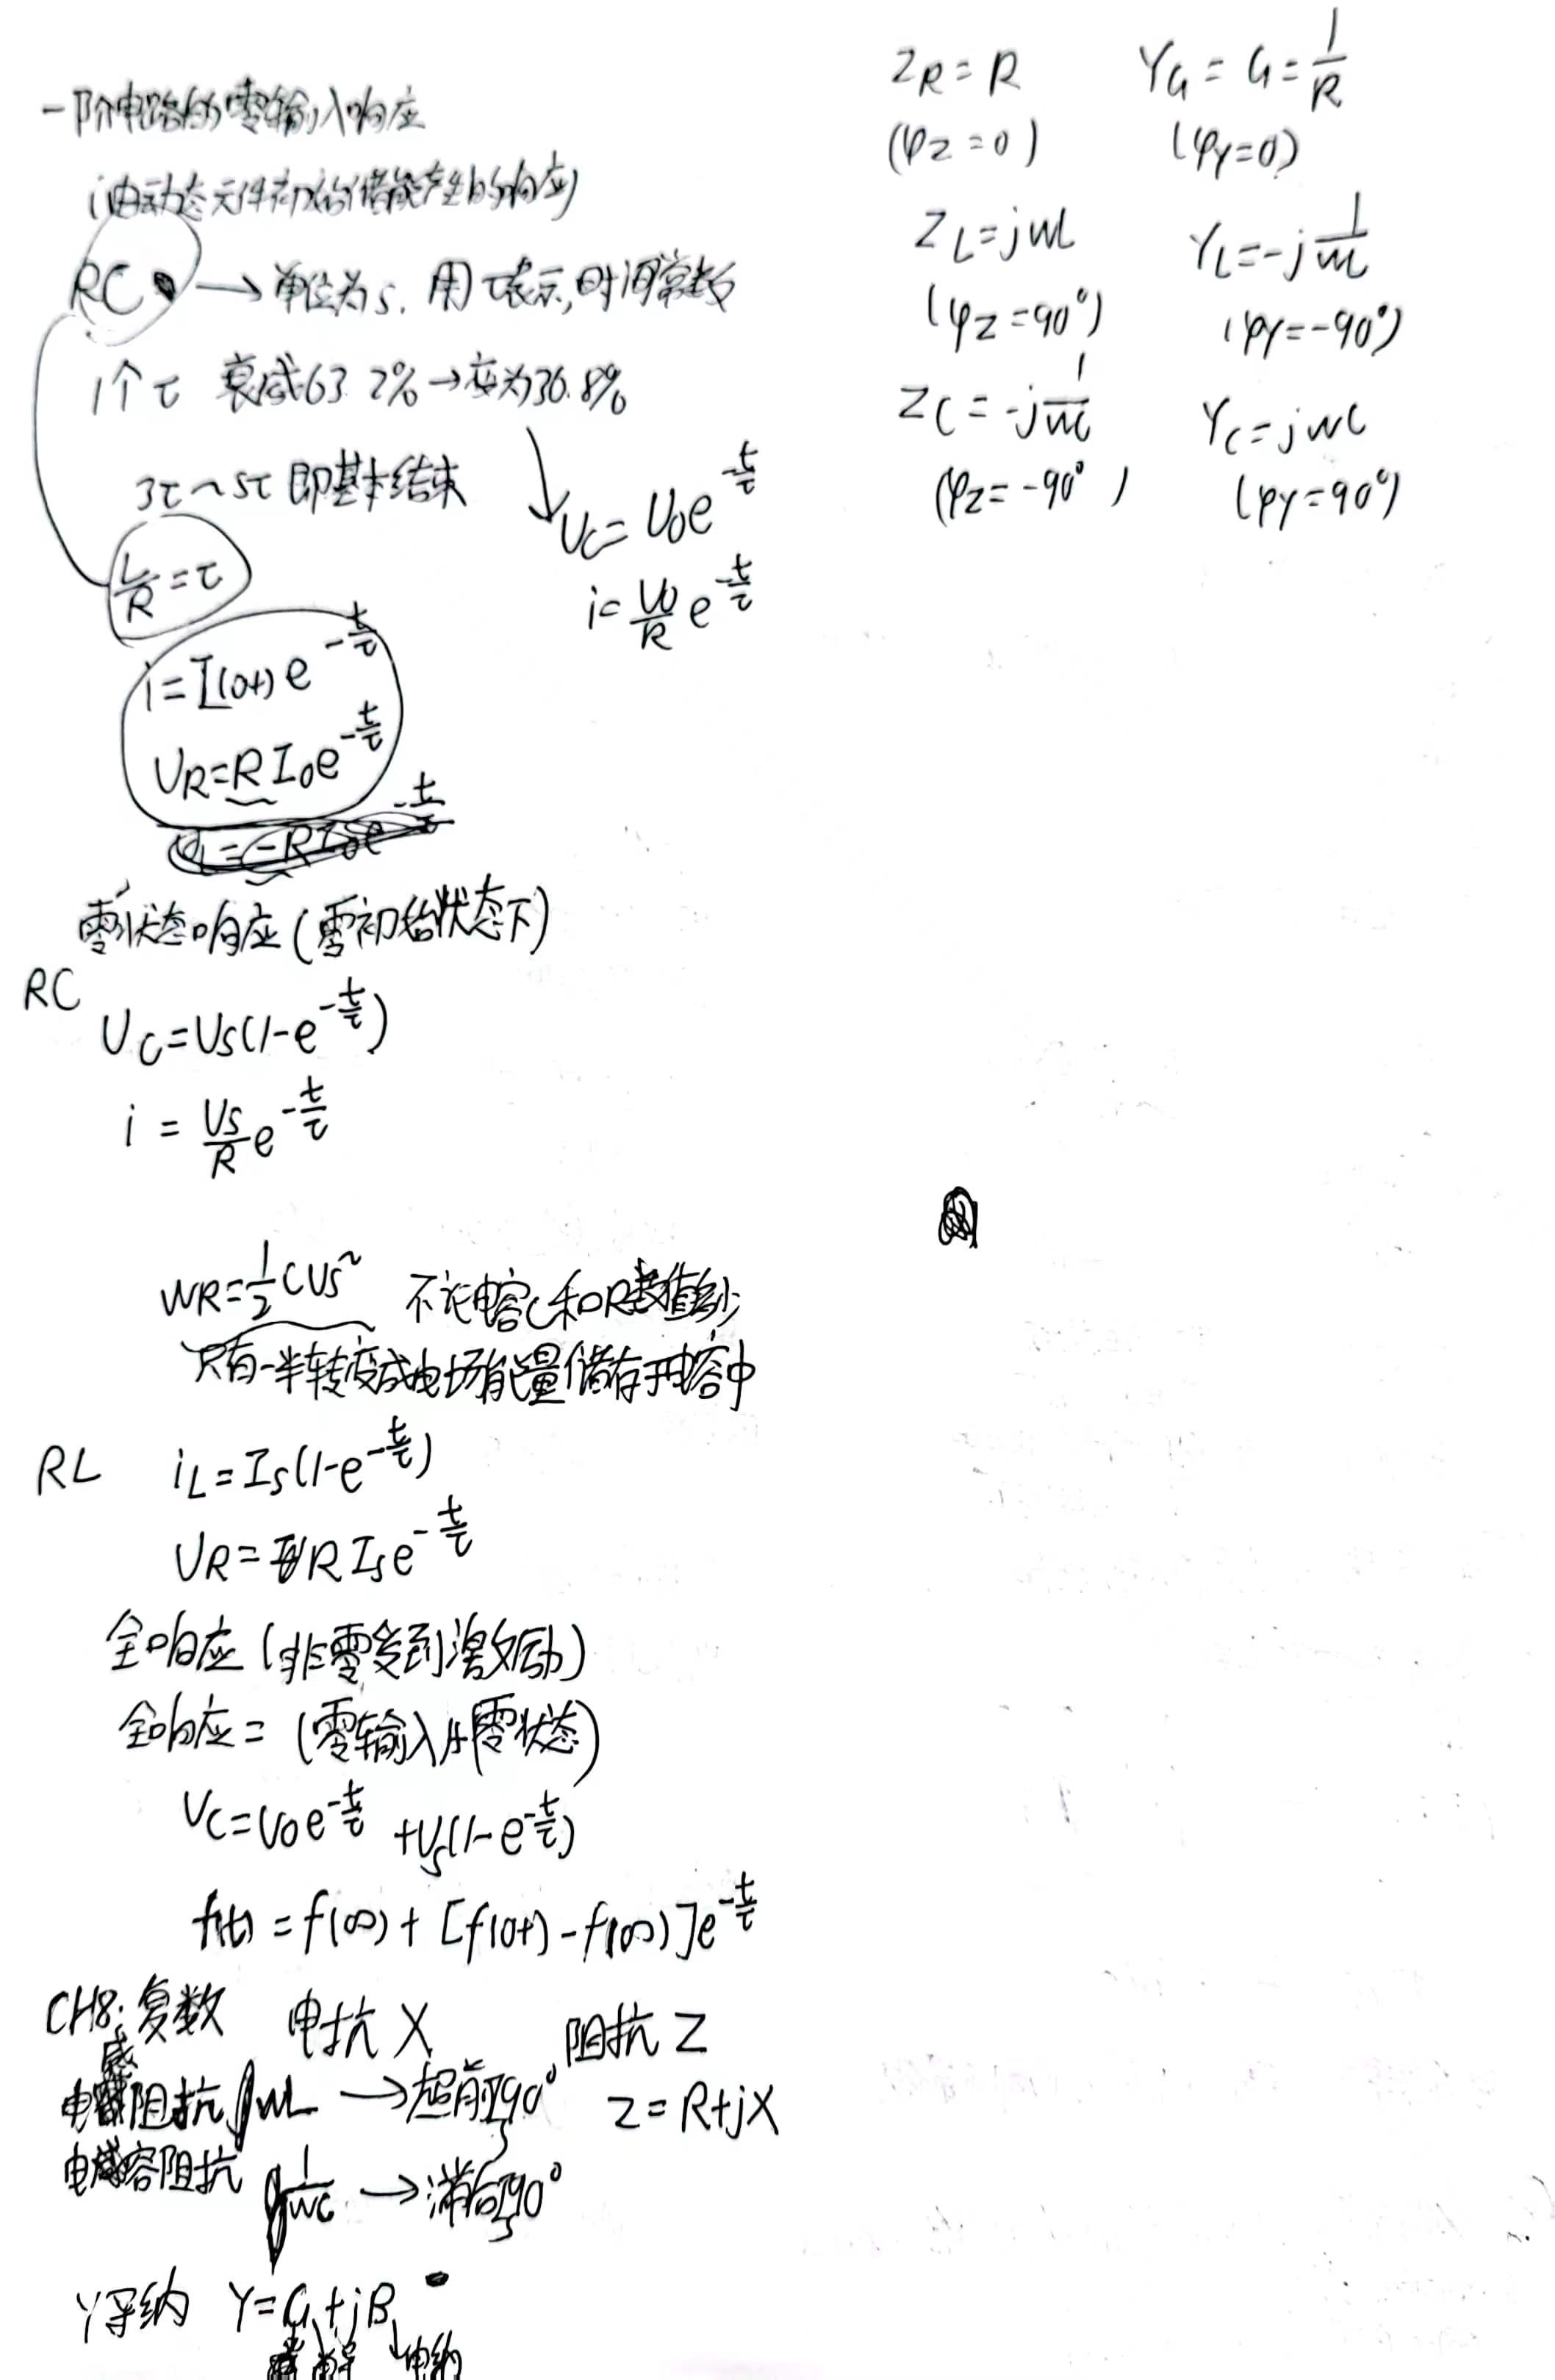 一阶电路的零输入响应
(由动态元件初始储能产生的响应)
RC → 单位为s. 用τ表示,时间常数
1个τ 衰减63.2%→变为36.8%
3τ~5τ 即基本结束
Uc=U0e^{-t/τ}
i=U0/R e^{-t/τ}
L/R=τ
i=I(0+)e^{-t/τ}
UR=RI0e^{-t/τ}
零状态响应(零初始状态下)
RC
Uc=Us(1-e^{-t/τ})
i=Us/R e^{-t/τ}
WR=1/2CUs² 不论电容C和R数值多少
只有一半转变成电场能量储存于电容中
RL iL=Is(1-e^{-t/τ})
UR=RIse^{-t/τ}
全响应(非零受到激励)
全响应=(零输入+零状态)
Uc=U0e^{-t/τ}+Us(1-e^{-t/τ})
f(t)=f(∞)+[f(0+)-f(∞)]e^{-t/τ}
CH8:复数 电抗X 阻抗Z
电感阻抗 jwL→超前90° Z=R+jX
电容阻抗 1/wc→滞后90°
Y导纳 Y=G+jB
电纳
ZR=R YG=G=1/R
(φZ=0) (φY=0)
ZL=jwL YL=-j1/wL
(φZ=90°) (φY=-90°)
ZC=-j1/wC YC=jwC
(φZ=-90°) (φY=90°)